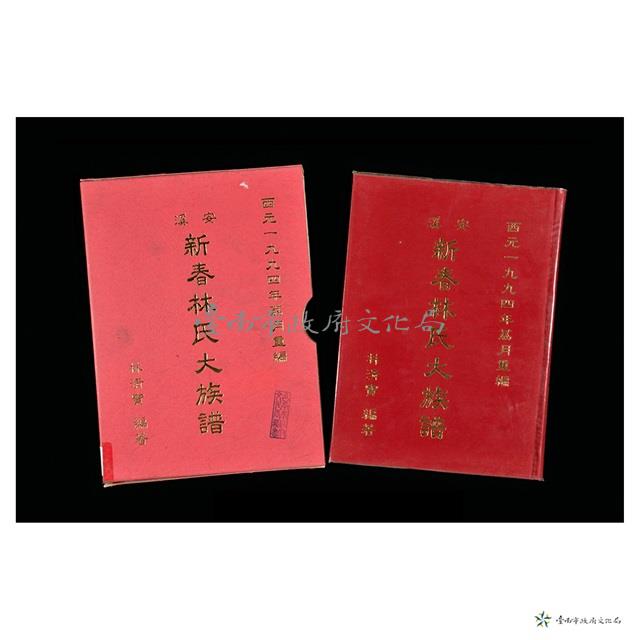 西元一九九四年月重編
安溪
新春林氏大族譜
林清寶 編著
西元一九九四年月重編
安溪
新春林氏大族譜
林清寶 編著
臺南市政府文化局
臺南市政府文化局